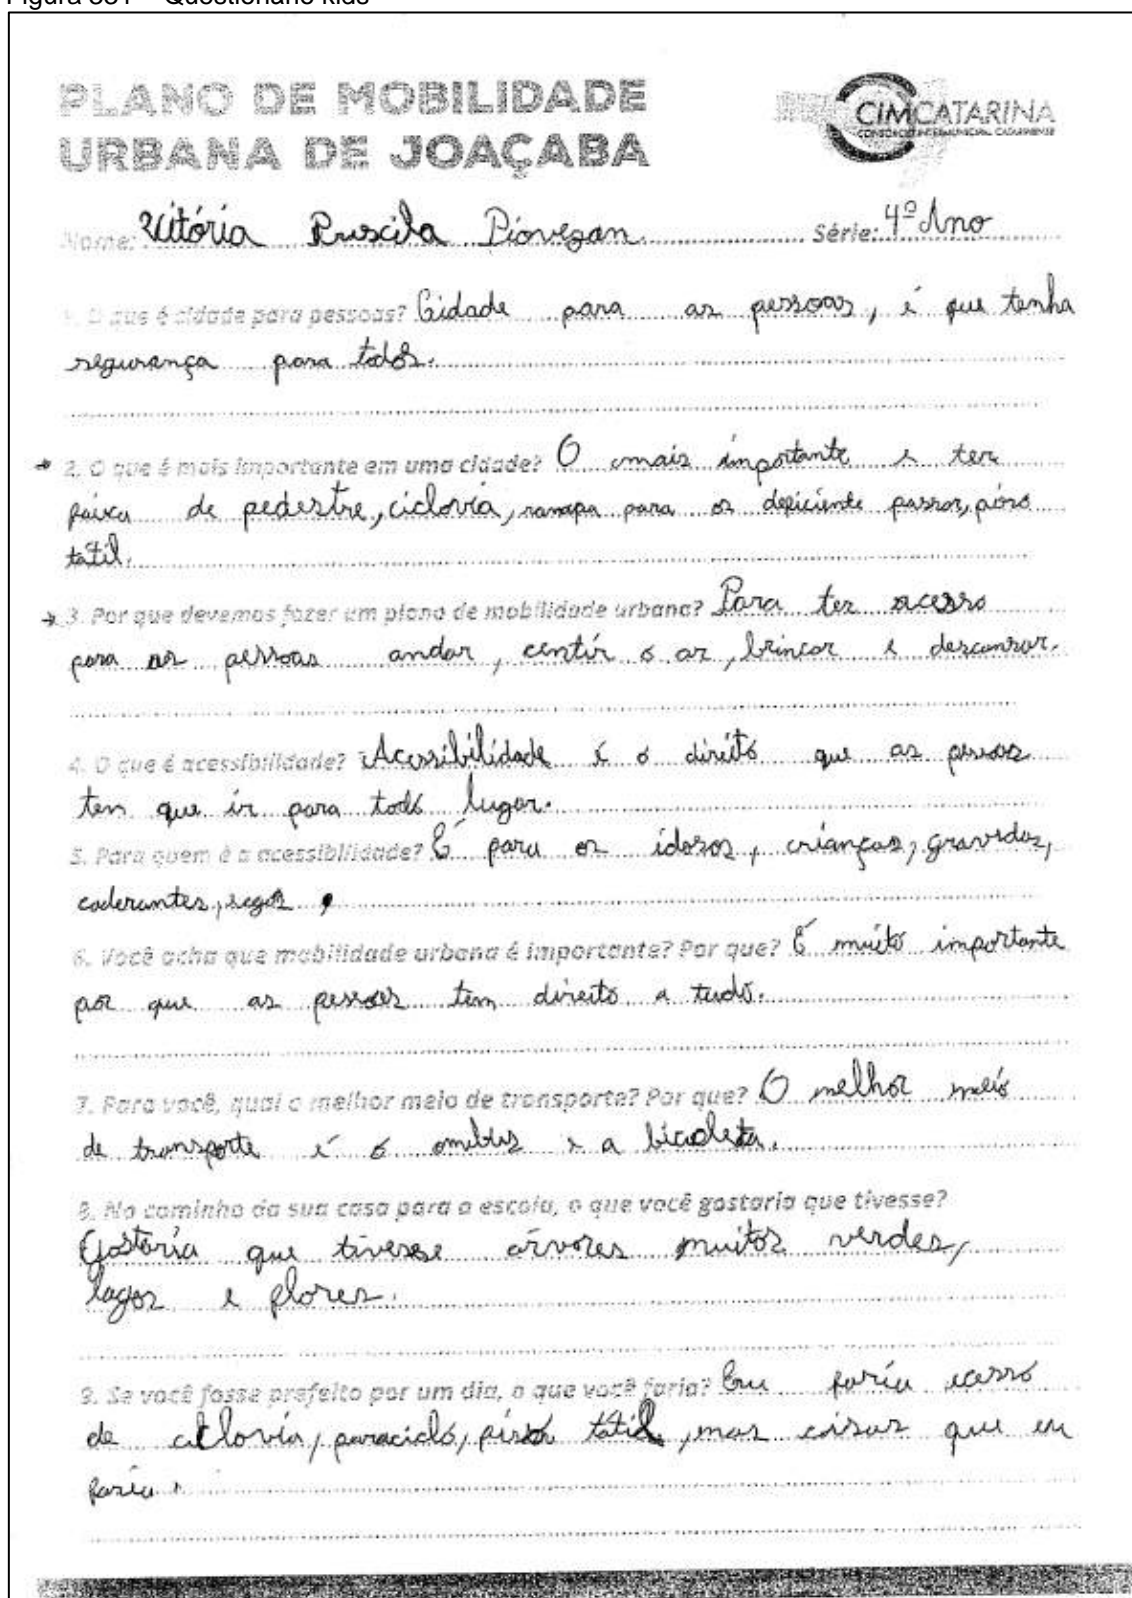 Figura 381 – Questionário kids
PLANO DE MOBILIDADE
URBANA DE JOAÇABA
CIMCATARINA
CONSÓRCIO INTERMUNICIPAL CATARINENSE
Nome: Vitória Priscila Piovezan Série: 4º Ano
1. O que é cidade para pessoas? Cidade para as pessoas, é que tenha
segurança para todos.
2. O que é mais importante em uma cidade? O mais importante e ter
faixa de pedestre, ciclovia, rampa para os deficiente passar, piso
tatil.
3. Por que devemos fazer um plano de mobilidade urbana? Para ter acesso
para as pessoas andar, centir o ar, brincar e descansar.
4. O que é acessibilidade? Acessibilidade é o direito que as pessoas
tem que ir para todo lugar.
5. Para quem é a acessibilidade? É para os idosos, crianças, gravidas,
caderantes, segos
6. Você acha que mobilidade urbana é importante? Por que? É muito importante
por que as pessoas tem direito a tudo.
7. Para você, qual o melhor meio de transporte? Por que? O melhor meio
de transporte é o omibus e a bicicleta.
8. No caminho da sua casa para a escola, o que você gostaria que tivesse?
Gostaria que tivesse árvores muitos verdes,
lagos e flores.
9. Se você fosse prefeito por um dia, o que você faria? Eu faria acesso
de ciclovia, paraciclo, piso tatil, mas coisas que eu
faria.